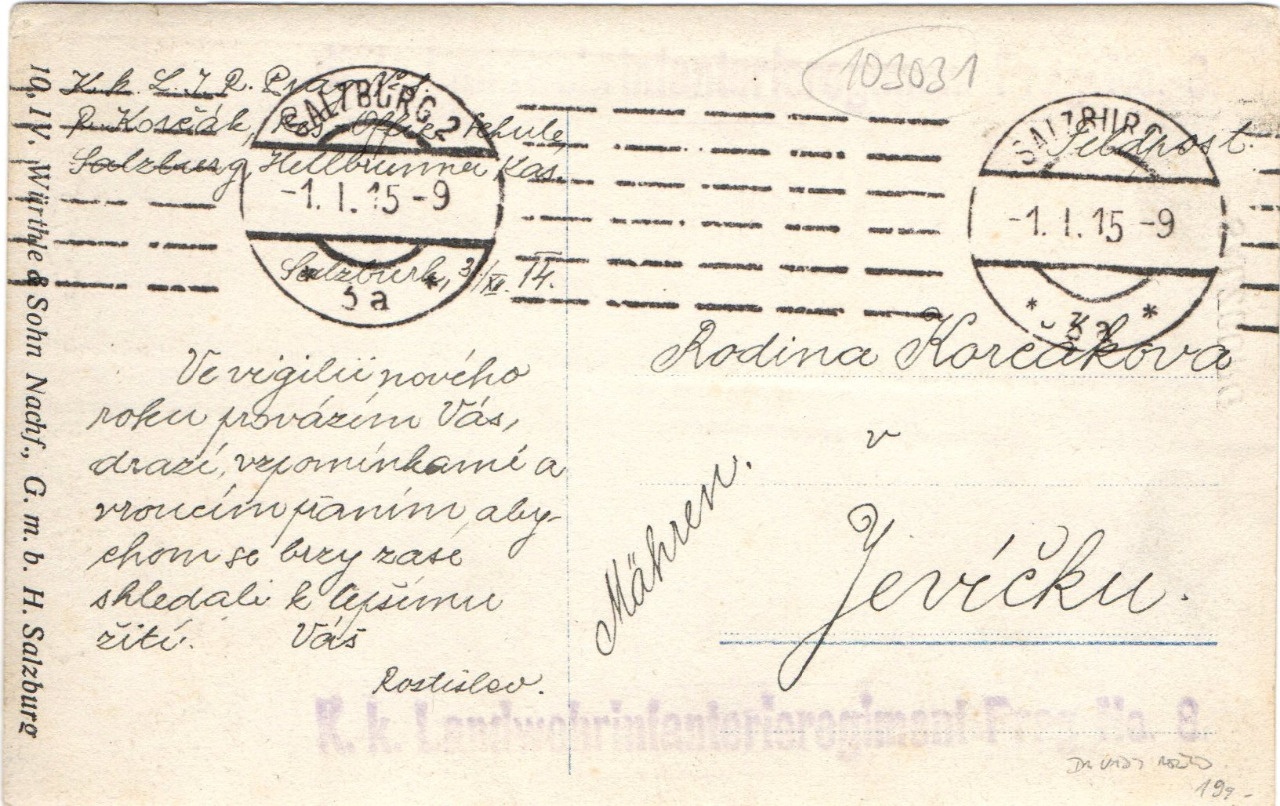 103031
K. k. L. I. R. Prag No 8.
R. Korčák, Res. Offiz. Schule
Salzburg, Hellbrunner Kas.
Feldpost.
SALZBURG 2
-1. I. 15 -9
* 3a *
SALZBURG
-1. I. 15 -9
* 3a *
Salzburk, 31/XII. 14.
Ve vigilii nového
roku provázím Vás,
drazí, vzpomínkami a
vroucím přáním, aby-
chom se brzy zase
shledali k lepšímu
žití. Váš
Rostislav.
Rodina Korčákova
v
Jevíčku.
Mähren.
K. k. Landwehrinfanterieregiment Prag No. 8.
10. IV. Würthle & Sohn Nachf., G. m. b. H. Salzburg